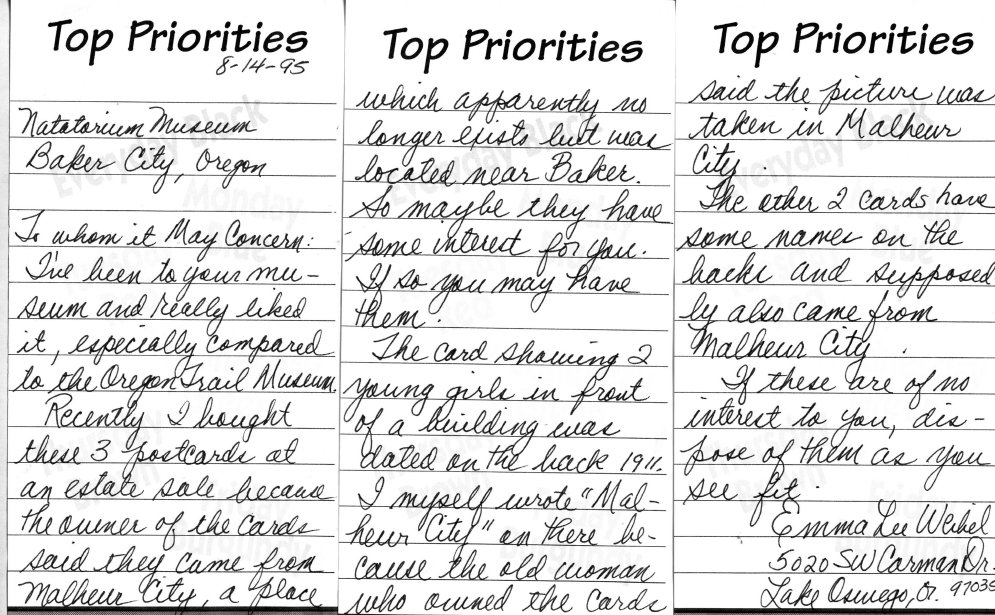 Top Priorities
8-14-95
Natatorium Museum
Baker City, Oregon
To whom it May Concern:
I've been to your mu-
seum and really liked
it, especially compared
to the Oregon Trail Museum.
Recently I bought
these 3 postcards at
an estate sale because
the owner of the cards
said they came from
Malheur City, a place
Top Priorities
which apparently no
longer exists but was
located near Baker.
So maybe they have
some interest for you.
If so you may have
them.
The card showing 2
young girls in front
of a building was
dated on the back 1911.
I myself wrote "Mal-
heur City" on there be-
cause the old woman
who owned the cards
Top Priorities
said the picture was
taken in Malheur
City.
The other 2 cards have
some names on the
backs and supposed
ly also came from
Malheur City.
If these are of no
interest to you, dis-
pose of them as you
see fit.
Emma Lu Weikel
5020 SW Carman Dr.
Lake Oswego, Or. 97035